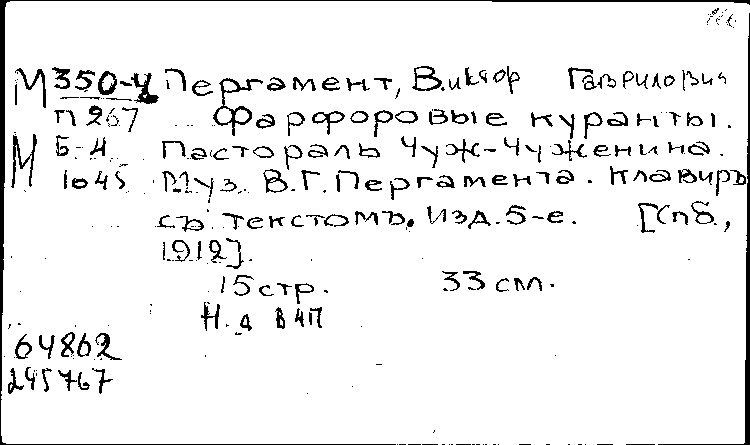 М 350-4 Пергамент, Виктор Гаврилович
П 267 Фарфоровые куранты.
М Б-4 Пастораль Чуж-Чуженина.
1045 Муз. В.Г. Пергамента. Клавиръ
съ текстомъ. Изд. 5-е. [Спб.,
1912].
15 стр. 33 см.
Н. д В 4П
64862
245767